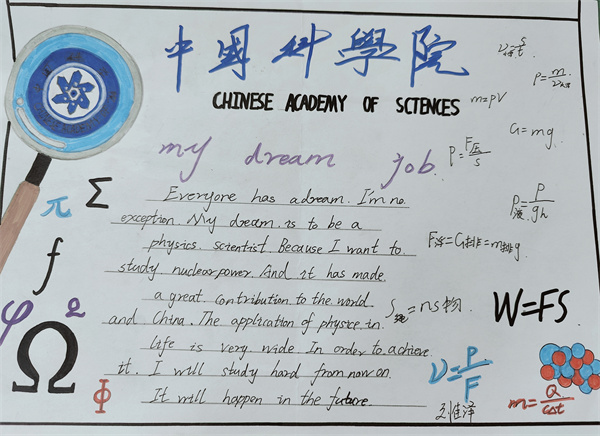 中國科學院
CHINESE ACADEMY OF SCTENCES
my dream job
Everyone has a dream. I'm no
exception. My dream is to be a
physics scientist. Because I want to
study nuclear power. And it has made
a great contribution to the world
and China. The application of physice in
life is very wide. In order to achieve
it. I will study hard from now on.
It will happen in the future.
π Σ
f
φ Ω 2
Φ
m=ρV
G=mg
F浮=G排=m排g
W=FS
υ=P/F
m=Q/cΔt